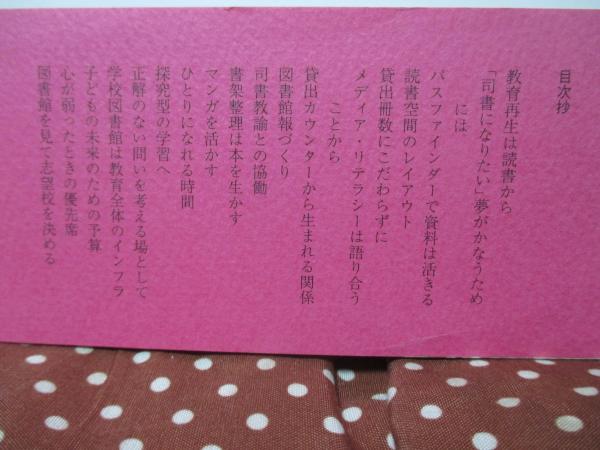 目次抄
教育再生は読書から
「司書になりたい」夢がかなうため
には
パスファインダーで資料は活きる
読書空間のレイアウト
貸出冊数にこだわらずに
メディア・リテラシーは語り合う
ことから
貸出カウンターから生まれる関係
図書館報づくり
司書教諭との協働
書架整理は本を生かす
マンガを活かす
ひとりになれる時間
探究型の学習へ
正解のない問いを考える場として
学校図書館は教育全体のインフラ
子どもの未来のための予算
心が弱ったときの優先席
図書館を見て志望校を決める